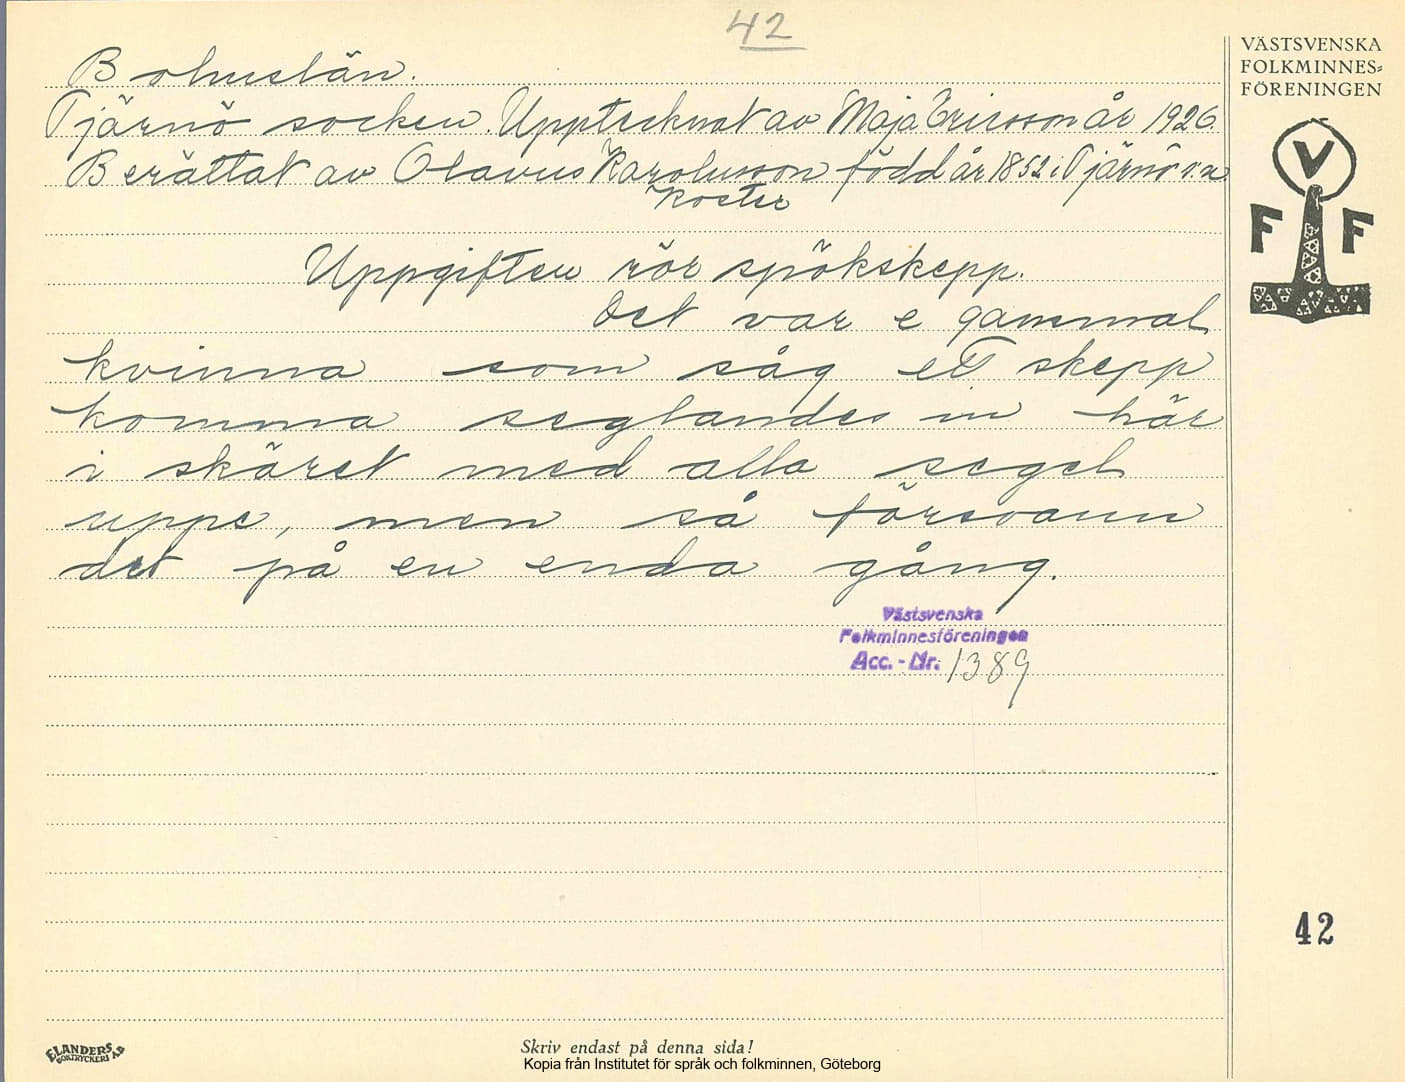 42
VÄSTSVENSKA
FOLKMINNES=
FÖRENINGEN
Bohuslän.
Tjärnö socken. Upptecknat av Maja Ericsson år 1926.
Berättat av Olavus Karolusson född år 1852 i Tjärnö s:n
Koster
V
F F
Uppgiften rör spökskepp.
Det var e gammal
kvinna som såg ett skepp
komma seglandes in här
i skäret med alla segel
uppe, men så försvann
det på en enda gång.
Västsvenska
Folkminnesföreningen
Acc. - Nr. 1389
42
ELANDERS
BOKTRYCKERI A.B
Skriv endast på denna sida!
Kopia från Institutet för språk och folkminnen, Göteborg